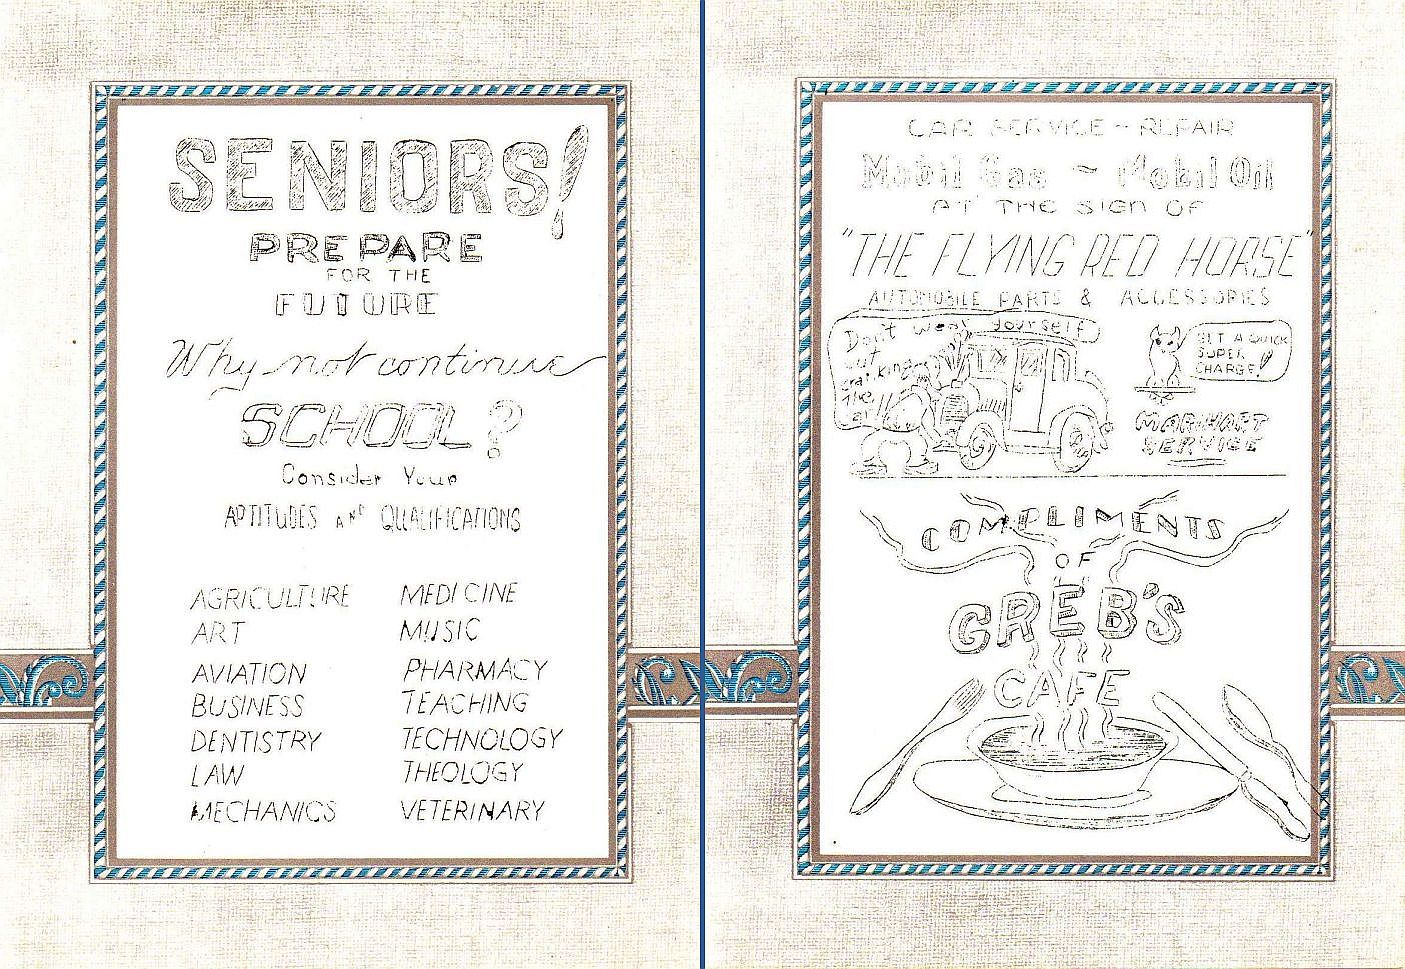 SENIORS!
PREPARE
FOR THE
FUTURE
Why not continue
SCHOOL?
Consider Your
APTITUDES AND QUALIFICATIONS
AGRICULTURE
ART
AVIATION
BUSINESS
DENTISTRY
LAW
MECHANICS
MEDICINE
MUSIC
PHARMACY
TEACHING
TECHNOLOGY
THEOLOGY
VETERINARY
CAR SERVICE - REPAIR
Mobil Gas ~ Mobil Oil
AT THE SIGN OF
"THE FLYING RED HORSE"
AUTOMOBILE PARTS & ACCESSORIES
Don't wear yourself
out
cranking
the
car!!
GET A QUICK
SUPER
CHARGE!
MARIHART
SERVICE
COMPLIMENTS
OF
GREB'S
CAFE